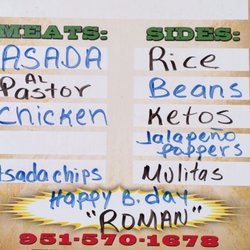 MEATS: SIDES:
ASADA Rice
AL
Pastor Beans
Chicken Ketos
Jalapeño
poppers
tsadachips Mulitas
Happy B.day
"ROMAN"
951-570-1678